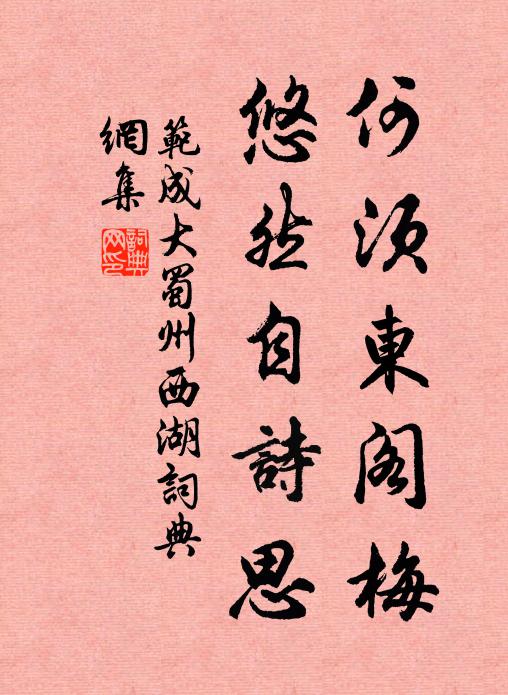 何須東閣梅
悠然自詩思
範成大蜀州西湖詞典
網集
詞典網印